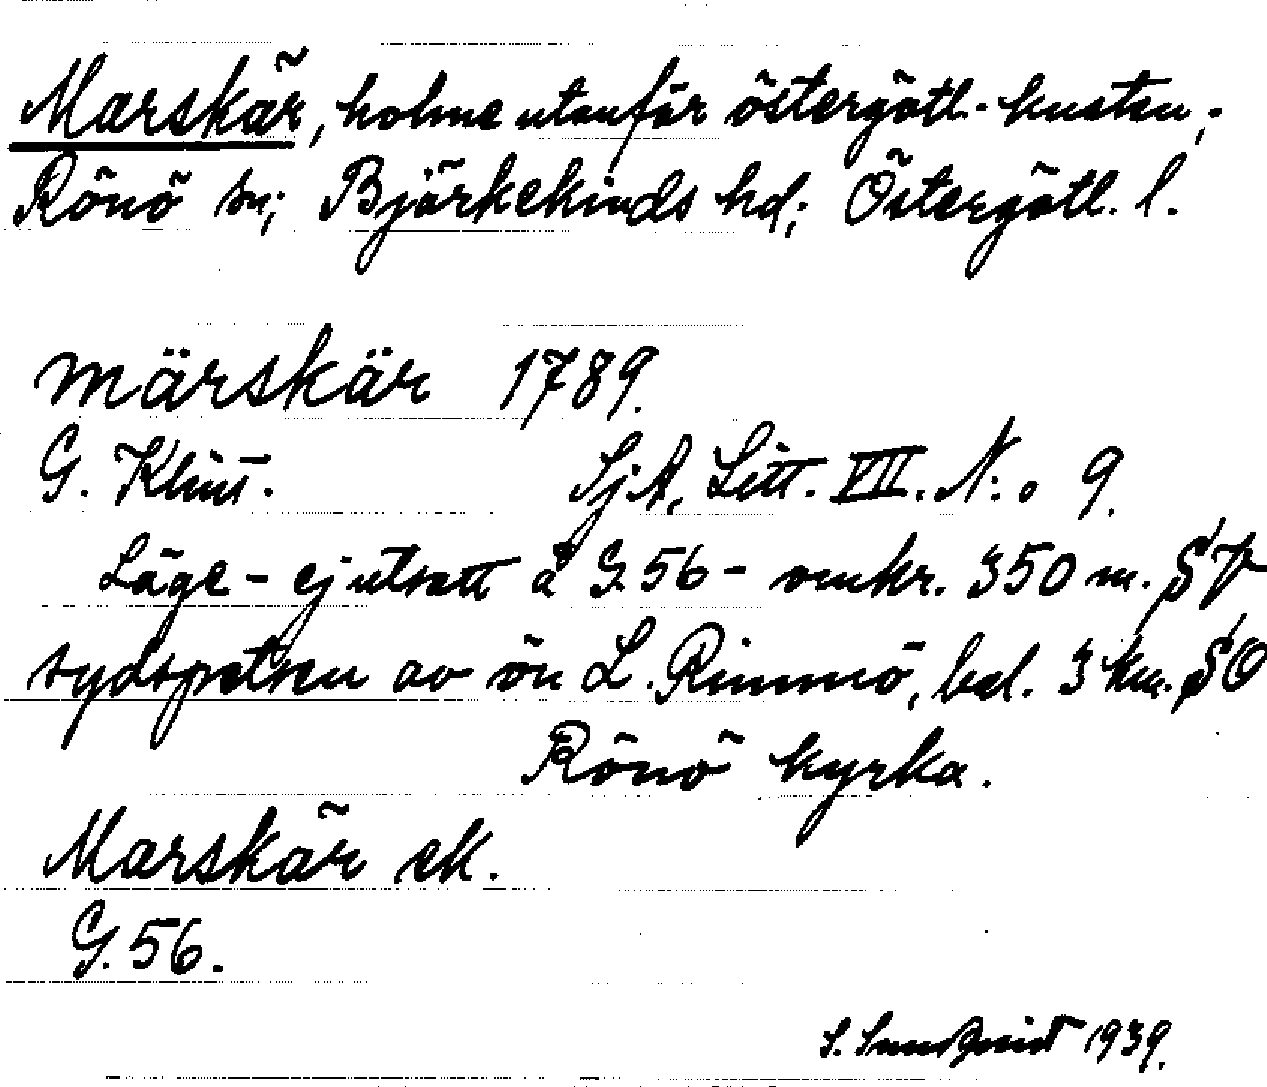 Marskär, holme utanför östergötl. kusten,;
Rönö sn; Björkekinds hd; Östergötl. l.
Märskär 1789.
G. Klint. SjA, Litt. VII. N:o 9.
Läge - ej utsatt å G.56 - omkr. 350 m. SV
sydspetsen av ön L. Rimmö, bel. 3 km. SO
Rönö kyrka.
Marskär ek.
G.56.
S. Sundqvist 1939.